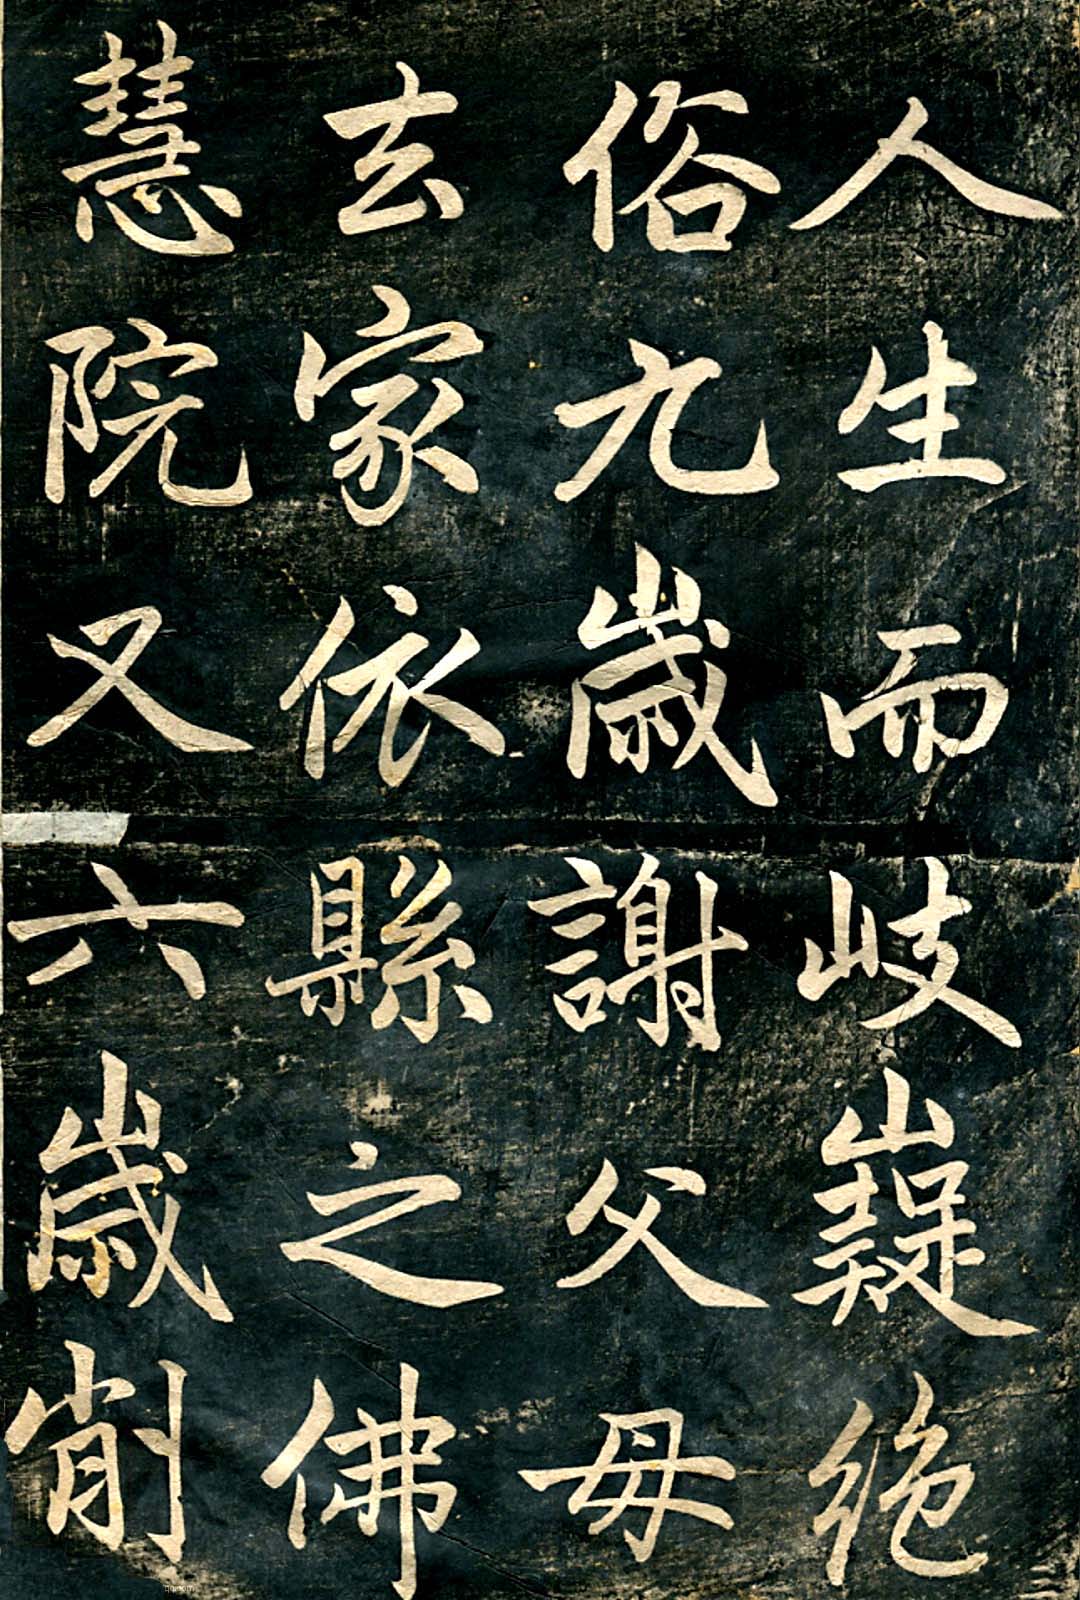 人生而岐嶷絶
俗九歲謝父母
玄家依縣之佛
慧院又六歲削